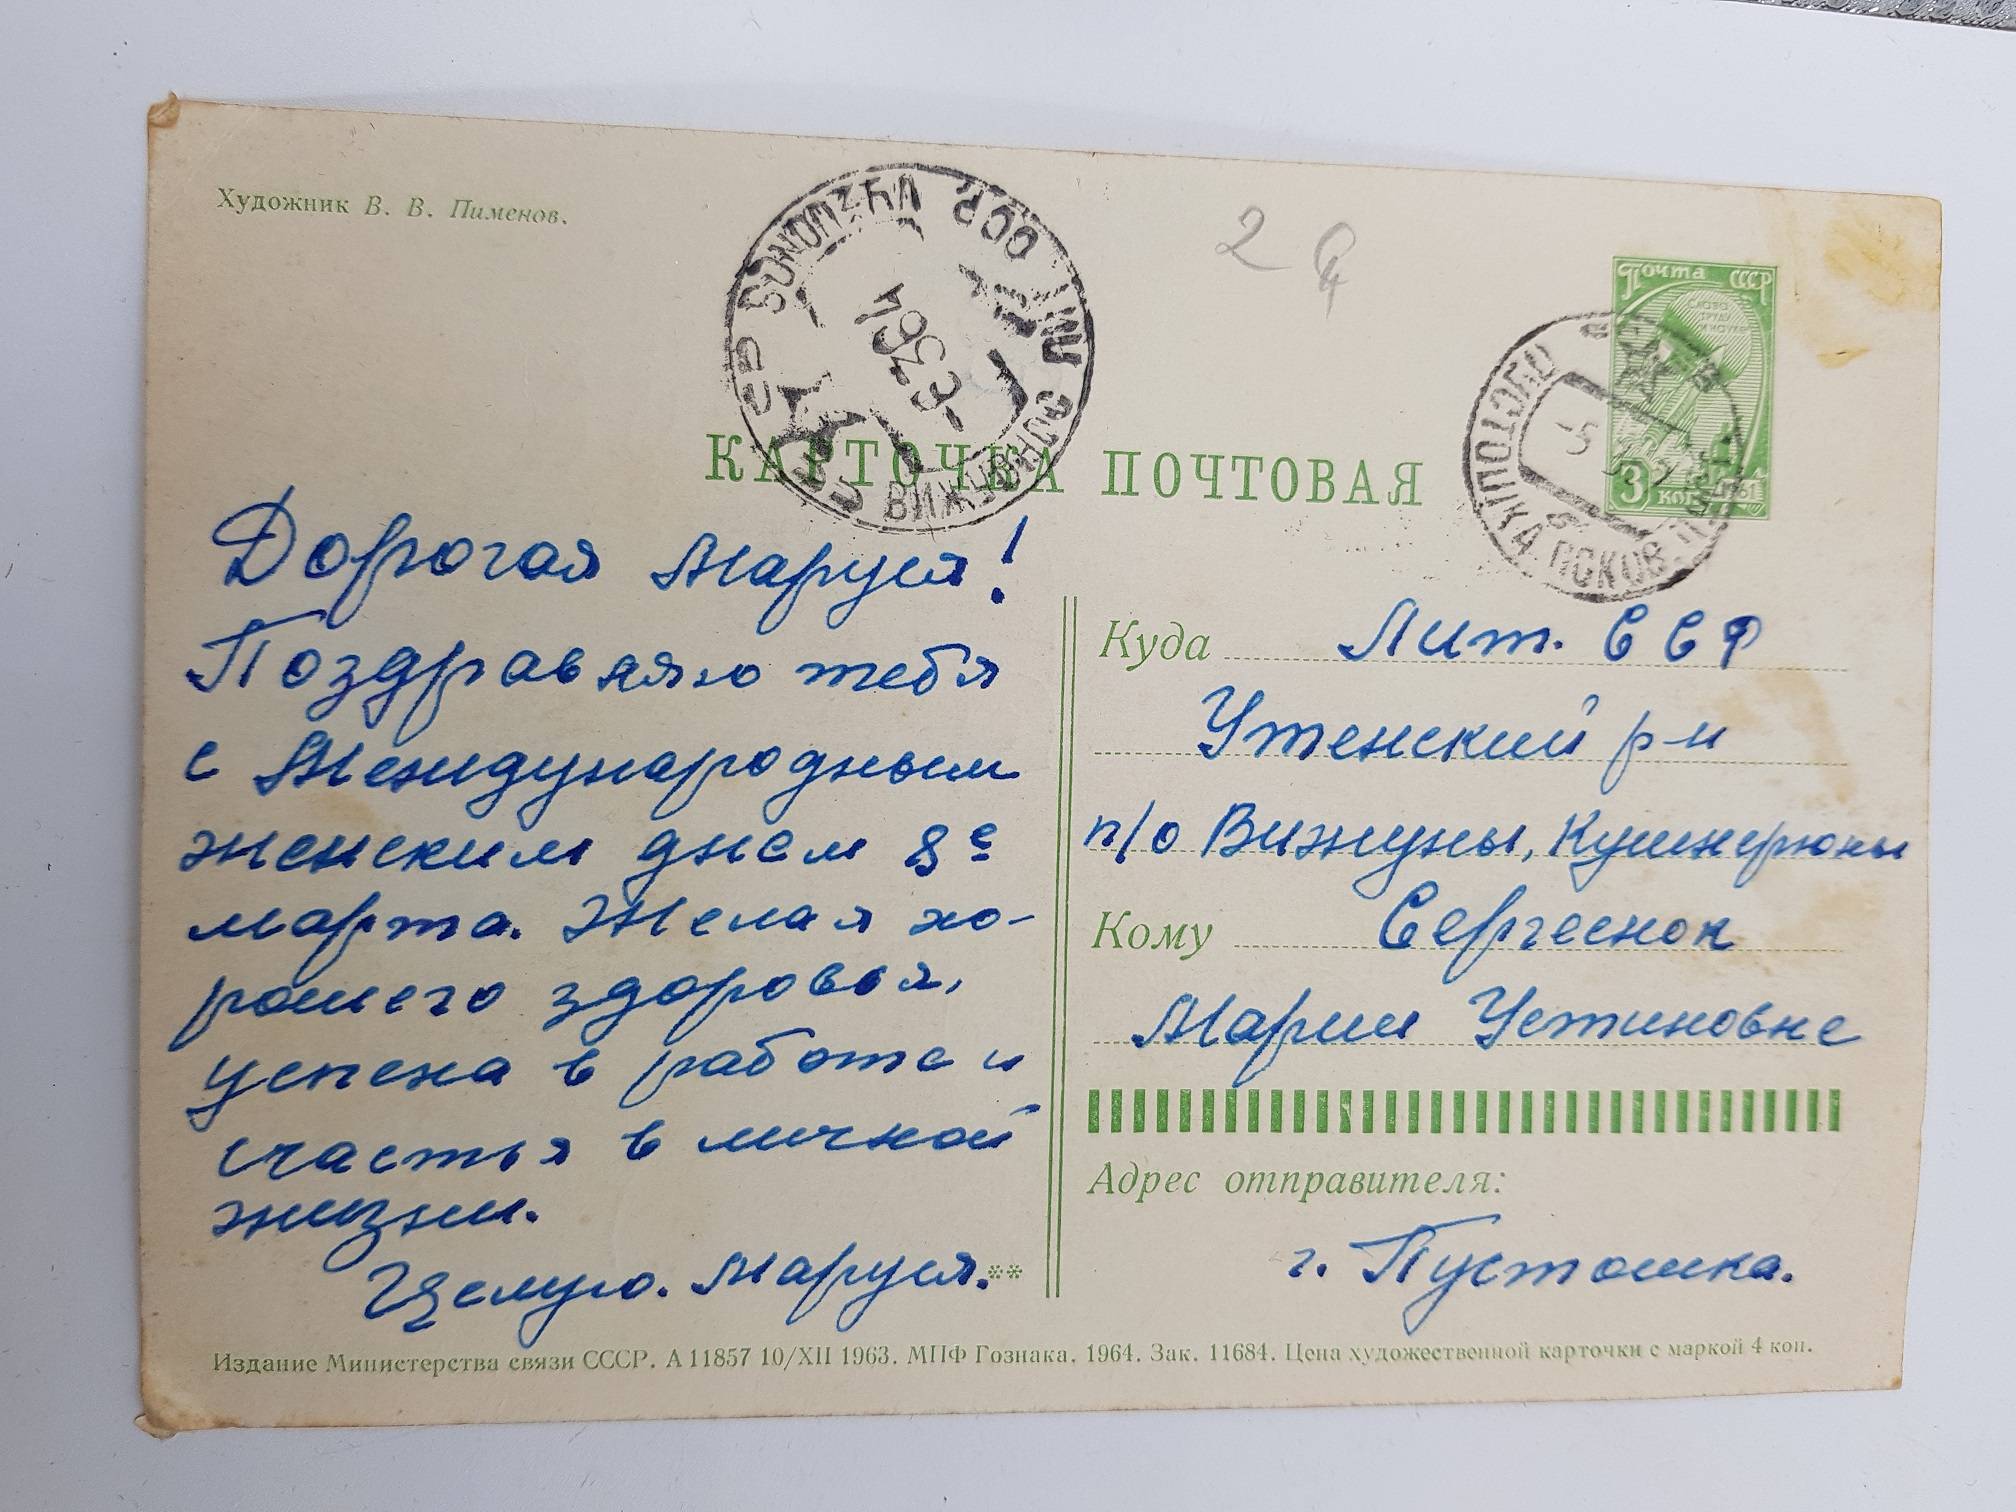 Художник В. В. Пименов.
2
Почта СССР
СЛАВА
ТРУДУ
И НАУКЕ
3 коп 1961
-5
ПУСТОШКА ПСКОВ.
-9 3 64
КАРТОЧКА ПОЧТОВАЯ
Дорогая Маруся!
Поздравляю тебя
с Международным
женским днем 8е
марта. Желая хо-
рошего здоровья,
успеха в работе и
счастья в личной
жизни.
Целую. Маруся.**
Куда Лит. ССР
Утенский р-н
п/о Вижуны, Кушнерюны
Кому Сергеенок
Марии Устиновне
Адрес отправителя:
г. Пустошка.
Издание Министерства связи СССР. А 11857 10/XII 1963. МПФ Гознака, 1964. Зак. 11684. Цена художественной карточки с маркой 4 коп.